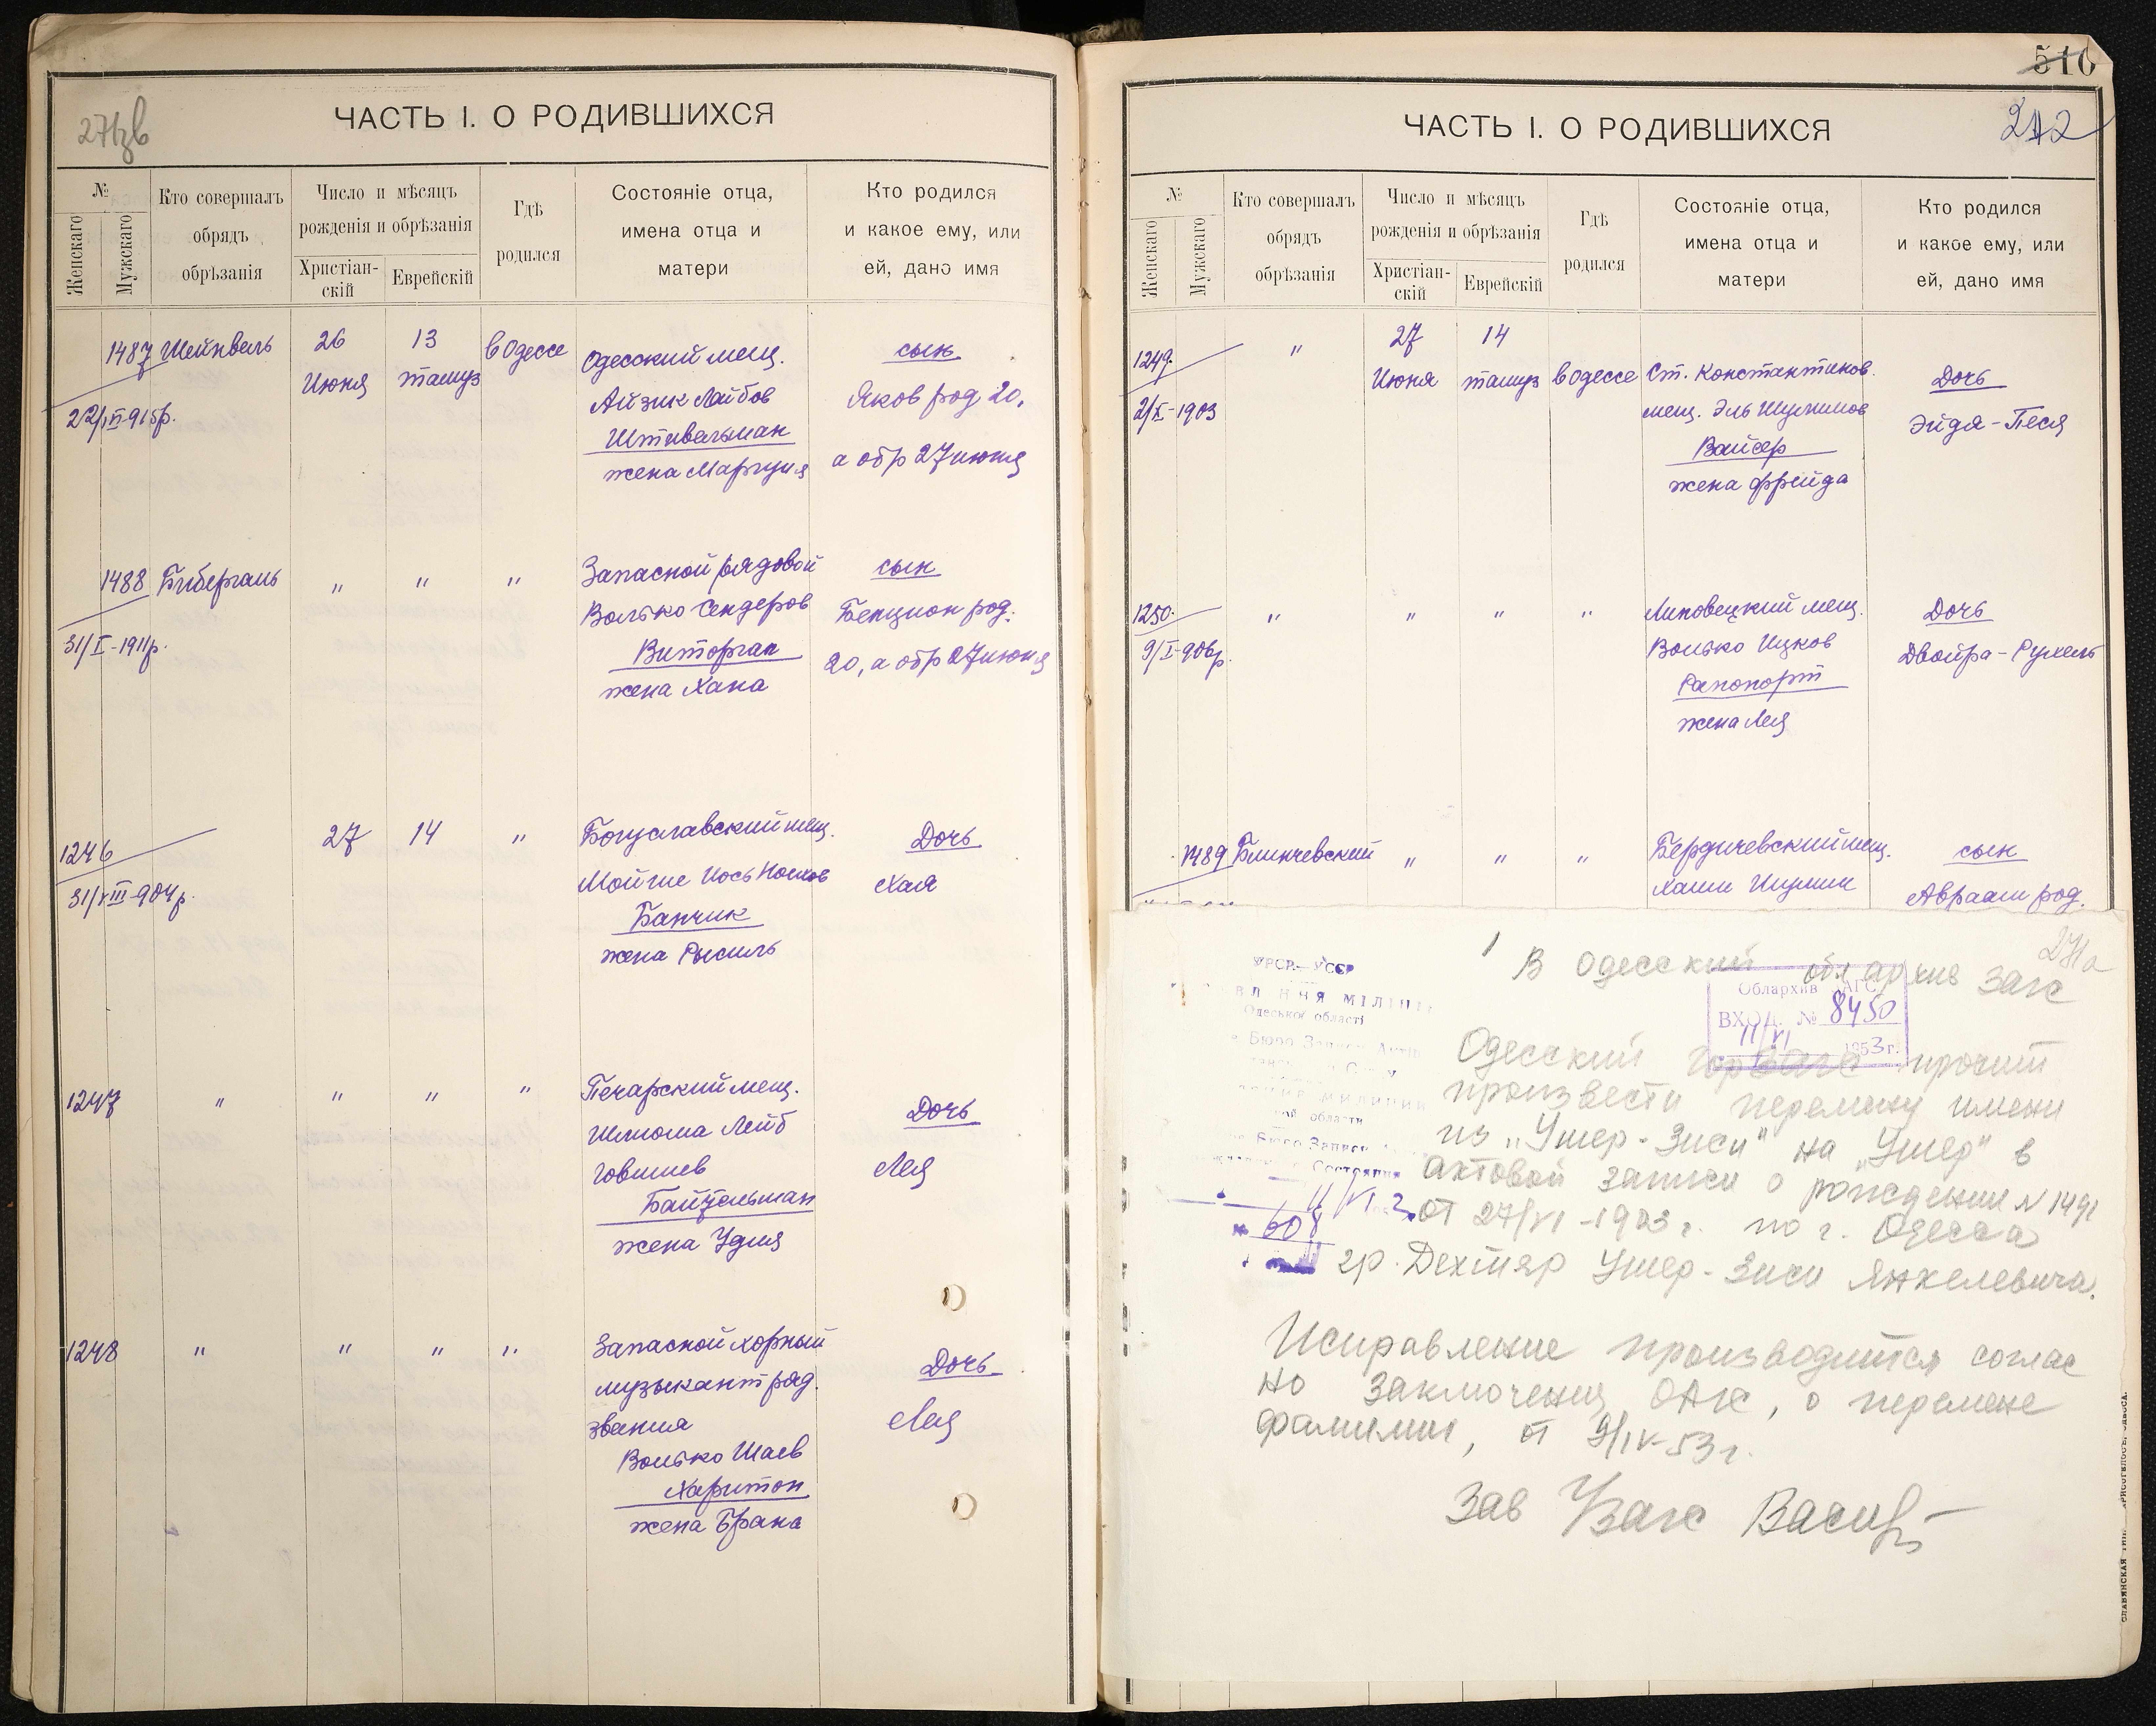 27
ЧАСТЬ I. О РОДИВШИХСЯ
№
Женскаго
Мужскаго
Кто совершалъ
обрядъ
обрѣзанія
Число и мѣсяцъ
рожденія и обрѣзанія
Христіан-
скій
Еврейскій
Гдѣ
родился
Состояніе отца,
имена отца и
матери
Кто родился
и какое ему, или
ей, дано имя
1487
26
Июня
13
тамуз
в Одессе
Одесский мещ.
Айзик Лейбов
Штивельман
жена Маргуля
сын
Яков род 20,
а обр 27 июня
1488 Бибергаль
" " "
Запасной рядовой
Волько Сендеров
Виторган
жена Хана
сын
Бенцион род.
20, а обр 27 июня
31/I-1911р.
1246
31/VIII-904р.
27 14 "
Богуславский мещ.
Мойше Иось Носков
Банчик
жена Рысиль
Дочь
Хая
1247
" " " "
Печарский мещ.
Шлиома Лейб
Говшиев
Байзельман
жена Удля
Дочь
Лея
1248
" " " "
Запасной хорный
музыкант ряд.
звания
Волько Шаев
Харитон
жена Брана
Дочь
Лея
510
212
ЧАСТЬ I. О РОДИВШИХСЯ
№
Женскаго
Мужскаго
Кто совершалъ
обрядъ
обрѣзанія
Число и мѣсяцъ
рожденія и обрѣзанія
Христіан-
скій
Еврейскій
Гдѣ
родился
Состояніе отца,
имена отца и
матери
Кто родился
и какое ему, или
ей, дано имя
1249.
2/X-1903
"
27
Июня
14
тамуз
в Одессе
Ст. Константинов.
мещ. Эль Шулимов
Вайсер
жена Фрейда
Дочь
Эйдя-Песя
1250.
9/I-906р.
" " " "
Липовецкий мещ.
Волько Ицков
Рапопорт
жена Лея
Дочь
Двойра-Рухель
1489 Блинчевский
" " "
Бердичевский мещ.
Хаим Шулим
сын
Авраам род.
271а
УРСР.—УССР
МІЛІЦІЇ
Одеської області
Бюро Записи
МИЛИЦИИ
области
Бюро Записи
Состояния
№ 608
В Одесский обл архив Загс
Облархив ЗАГС
ВХОД. № 8450
11/VI 1953 г.
Одесский горЗАГС просит
произвести перемену имени
из „Ушер-Зиси" на „Ушер" в
актовой записи о рождении N 1491
от 27/VI-1903 г. по г. Одесса
гр. Дехтяр Ушер-Зиси Янкелевича.
Исправление производится соглас
но заключения ОАГС, о перемене
фамилии, от 9/IV-53 г.
Зав
СЛАВЯНСКАЯ